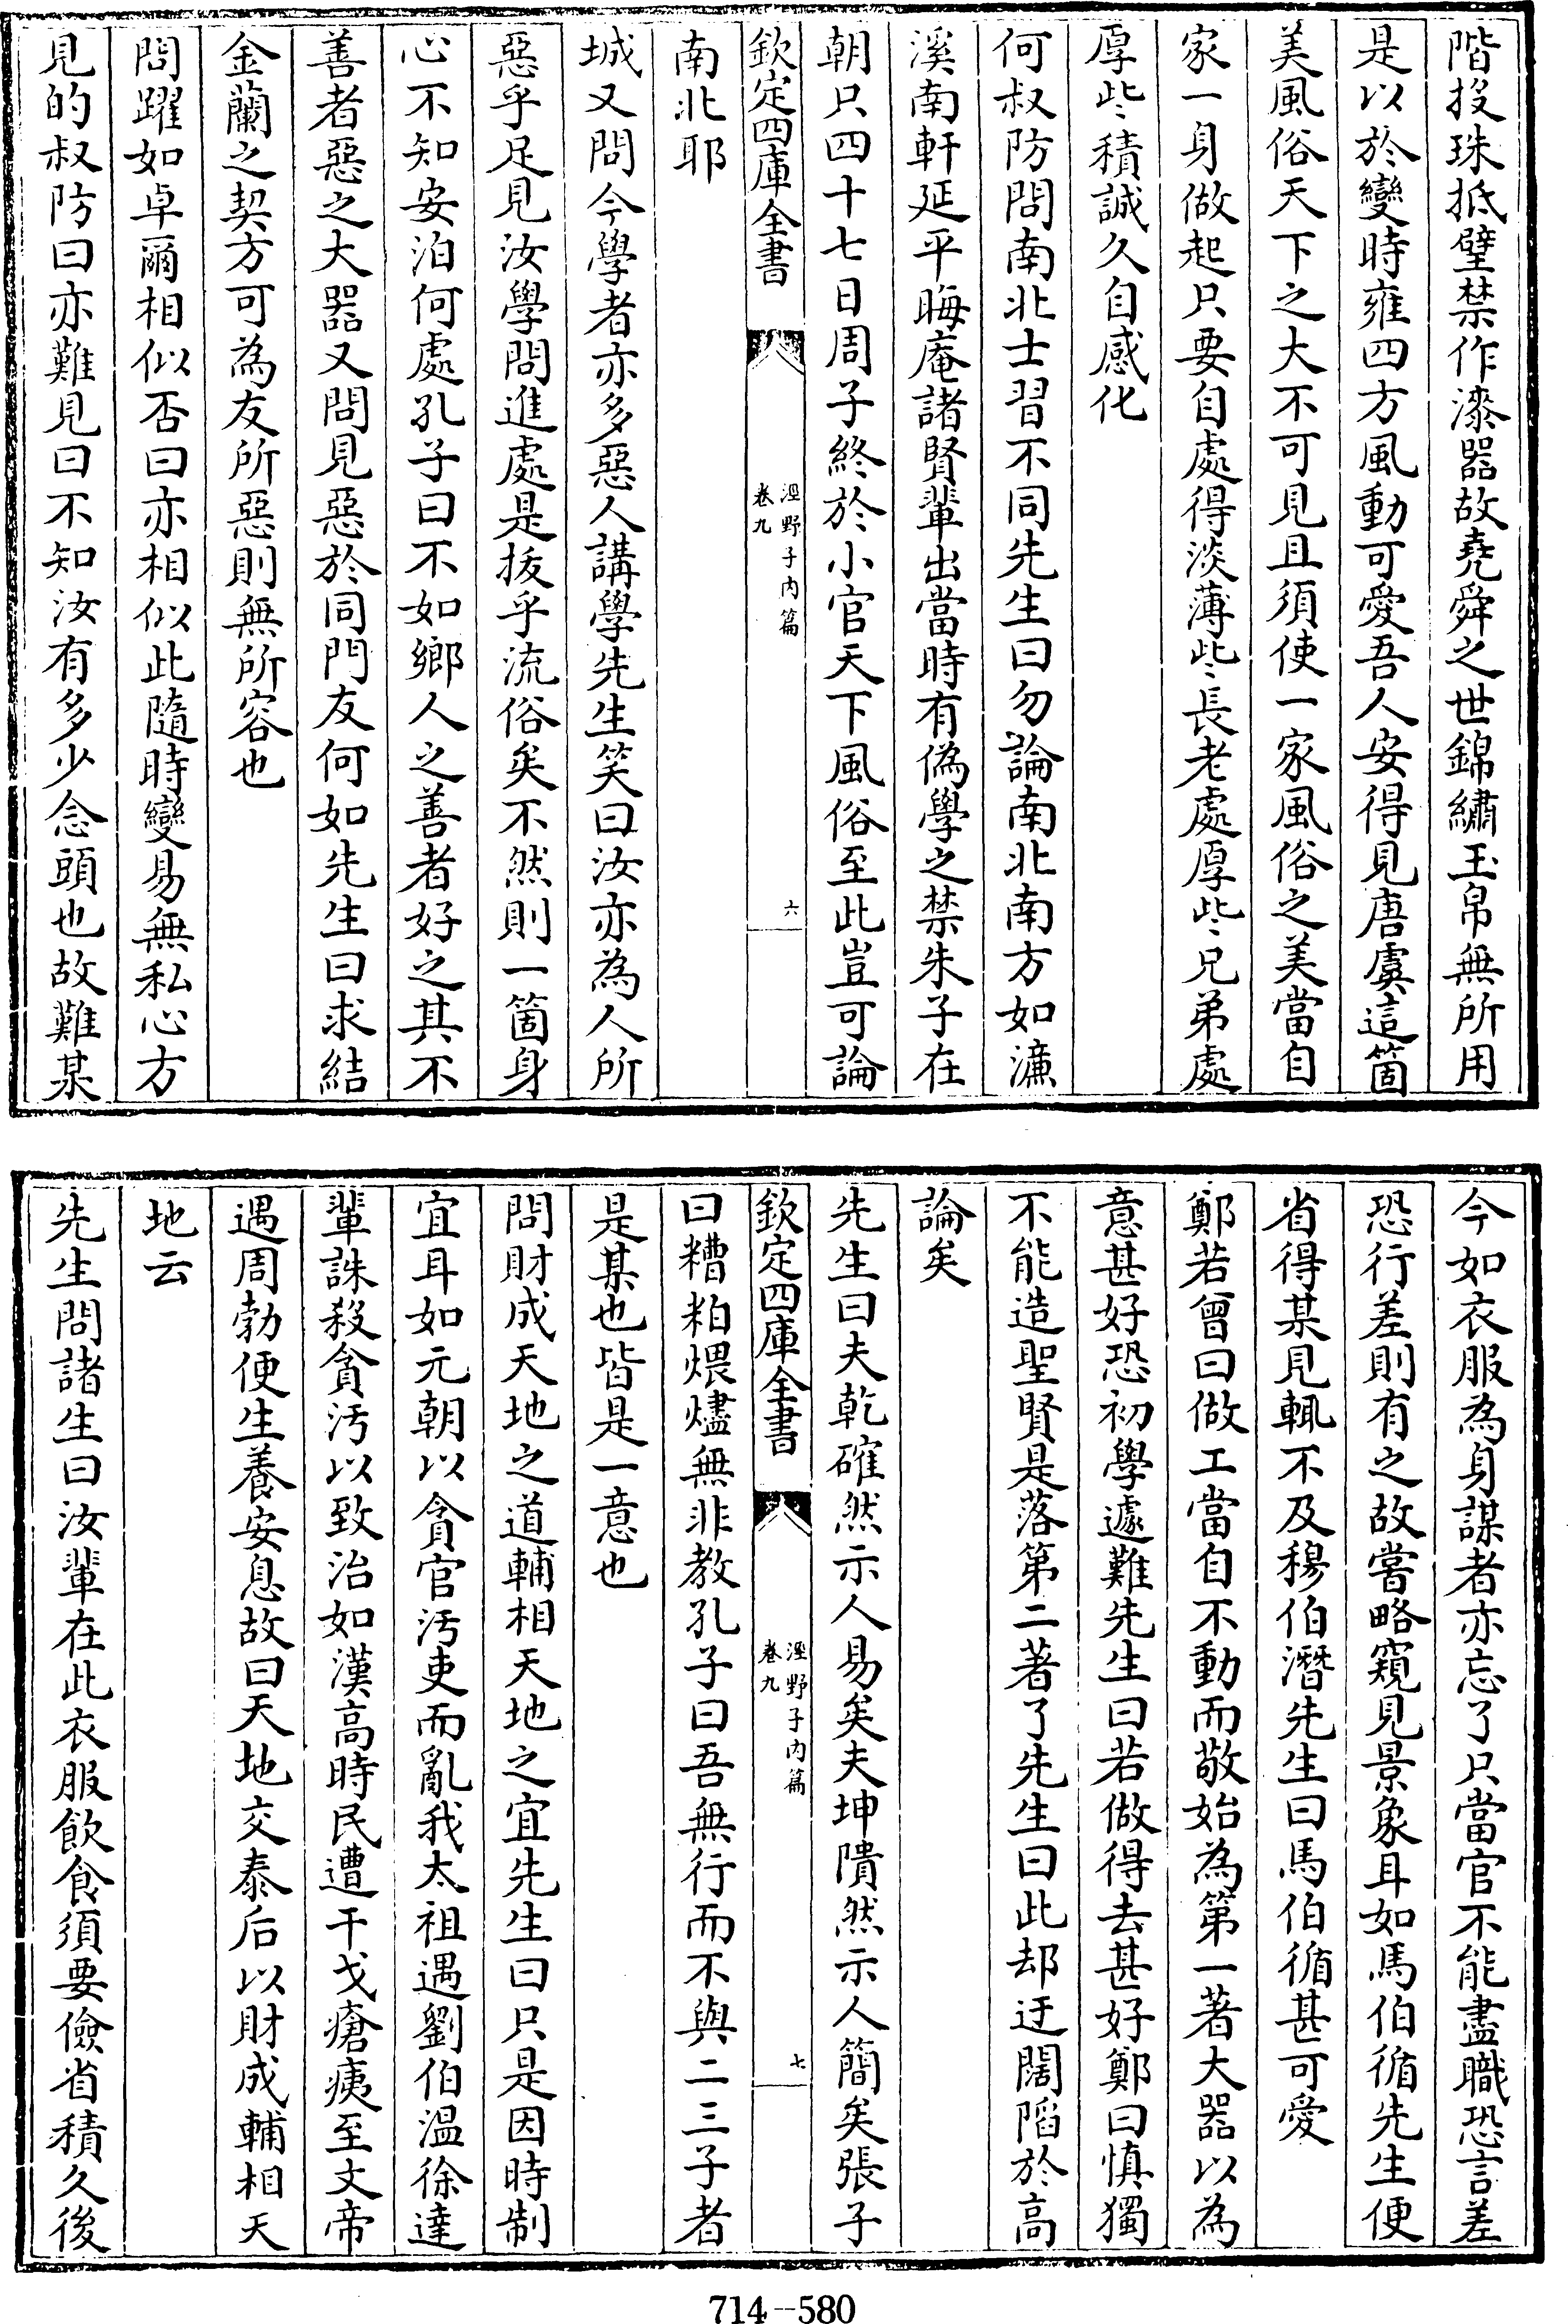 階投珠抵璧禁作漆器故堯舜之世錦繡玉帛無所用
是以於變時雍四方風動可愛吾人安得見唐虞這箇
美風俗天下之大不可見且須使一家風俗之美當自
家一身做起只要自處得淡薄些長老處厚些兄弟處
厚些積誠久自感化
何叔防問南北士習不同先生曰勿論南北南方如濂
溪南軒延平晦庵諸賢輩出當時有偽學之禁朱子在
朝只四十七日周子終於小官天下風俗至此豈可論
欽定四庫全書
涇野子內篇
卷九
六
南北耶
城又問今學者亦多惡人講學先生笑曰汝亦為人所
惡乎足見汝學問進處是拔乎流俗矣不然則一箇身
心不知安泊何處孔子曰不如鄉人之善者好之其不
善者惡之大器又問見惡於同門友何如先生曰求結
金蘭之契方可為友所惡則無所容也
問躍如卓爾相似否曰亦相似此隨時變易無私心方
見的叔防曰亦難見曰不知汝有多少念頭也故難某
今如衣服為身謀者亦忘了只當官不能盡職恐言差
恐行差則有之故嘗略窺見景象耳如馬伯循先生便
省得某見輒不及穆伯潛先生曰馬伯循甚可愛
鄭若曾曰做工當自不動而敬始為第一著大器以為
意甚好恐初學遽難先生曰若做得去甚好鄭曰慎獨
不能造聖賢是落第二著了先生曰此却迂闊陷於高
論矣
先生曰夫乾確然示人易矣夫坤隤然示人簡矣張子
欽定四庫全書
涇野子內篇
卷九
七
曰糟粕煨燼無非教孔子曰吾無行而不與二三子者
是某也皆是一意也
問財成天地之道輔相天地之宜先生曰只是因時制
宜耳如元朝以貪官汚吏而亂我太祖遇劉伯溫徐達
輩誅殺貪汚以致治如漢高時民遭干戈瘡痍至文帝
遇周勃便生養安息故曰天地交泰后以財成輔相天
地云
先生問諸生曰汝輩在此衣服飲食須要儉省積久後
714--580